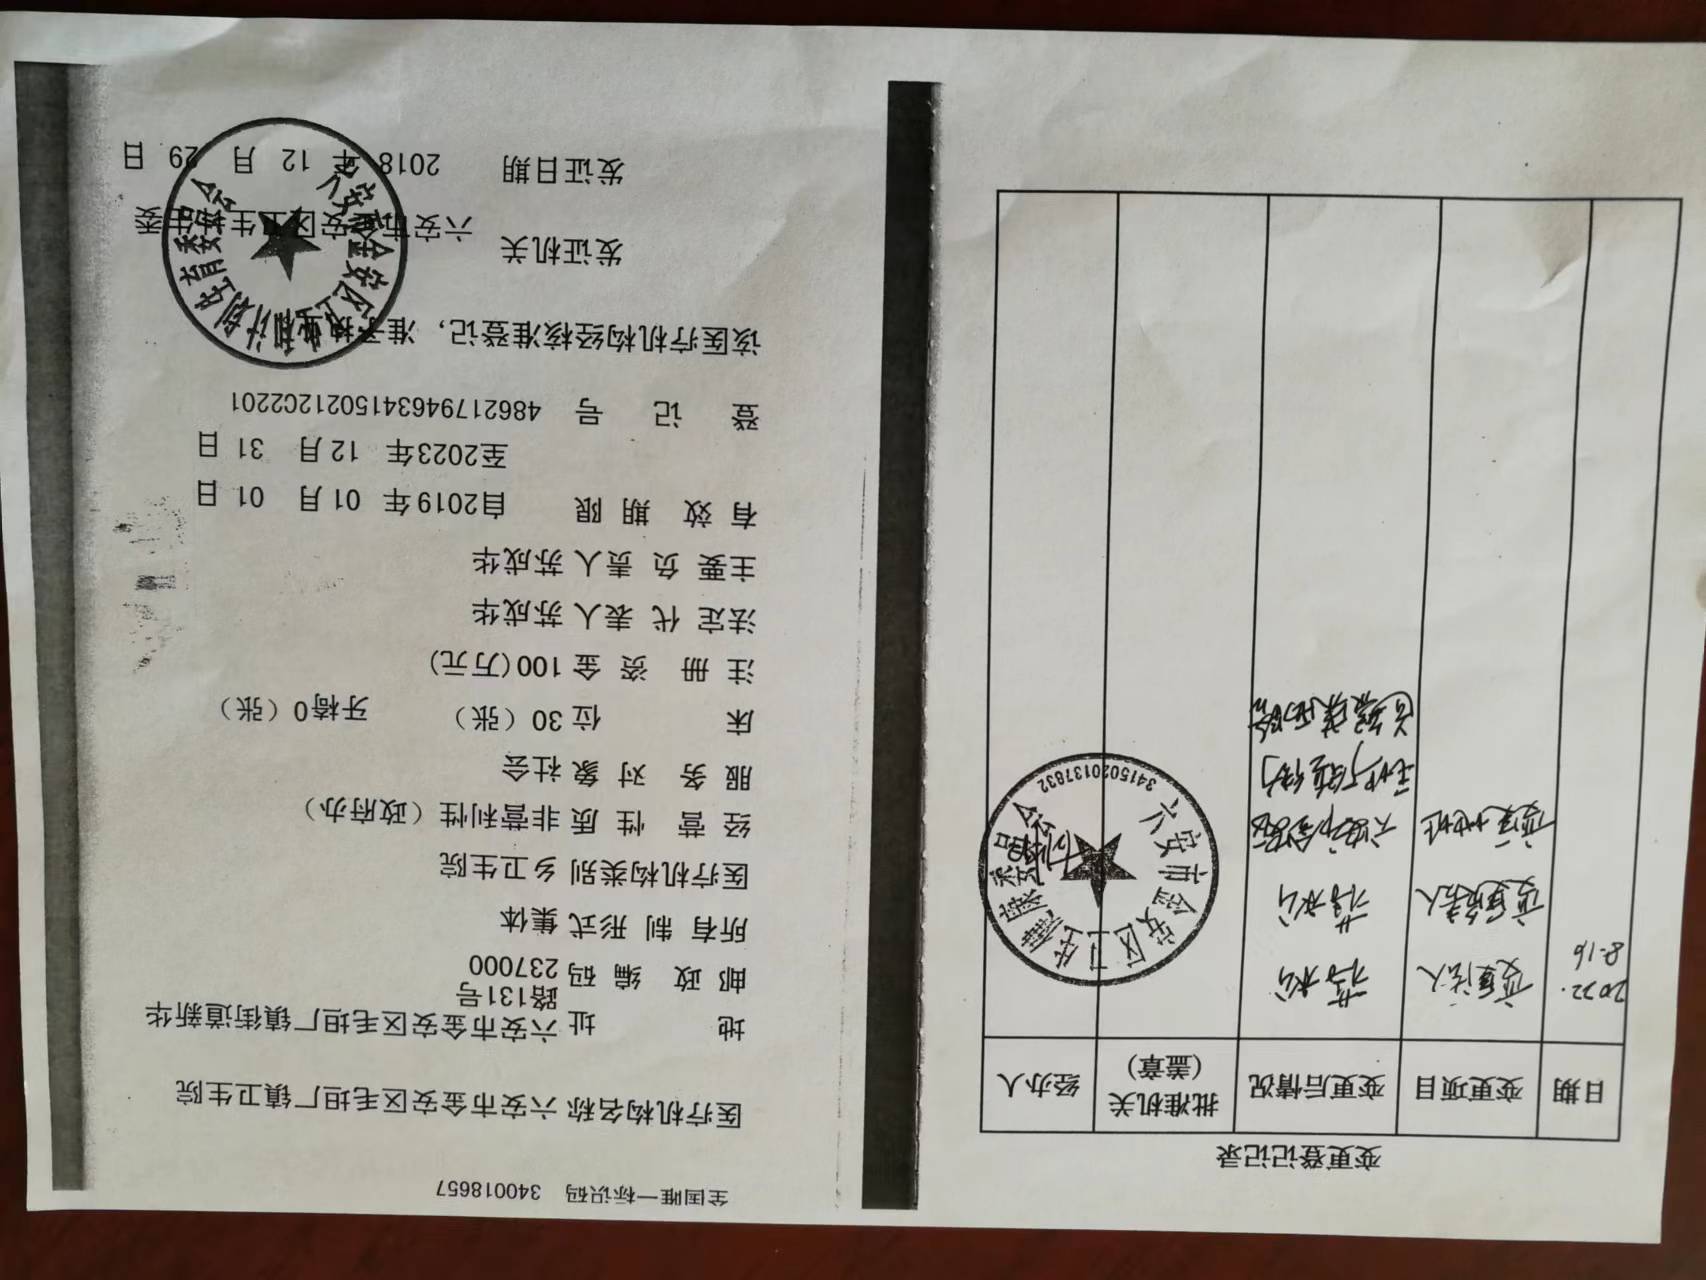 变更登记记录
日期 变更项目 变更后情况 批准机关（盖章） 经办人
2022. 变更法人
8.16
变更负责人
变更地址
六安市金安区卫生健康委员会
3415020137832
全国唯一标识码 340018657
医疗机构名称 六安市金安区毛坦厂镇卫生院
地 址 六安市金安区毛坦厂镇街道新华
路131号
邮 政 编 码 237000
所有 制 形式 集体
医疗机构类别 乡卫生院
经 营 性 质 非营利性（政府办）
服 务 对 象 社会
床 位 30（张） 牙椅0（张）
注 册 资 金 100(万元)
法定 代 表人 苏成华
主要 负 责人 苏成华
有 效 期 限 自2019年 01月 01日
至2023年 12月 31日
登 记 号 48621794634150212C2201
该医疗机构经核准登记，准予执业
发证机关 六安市金安区卫生和计生委
发证日期 2018年 12月 29日
六安市金安区卫生和计划生育委员会